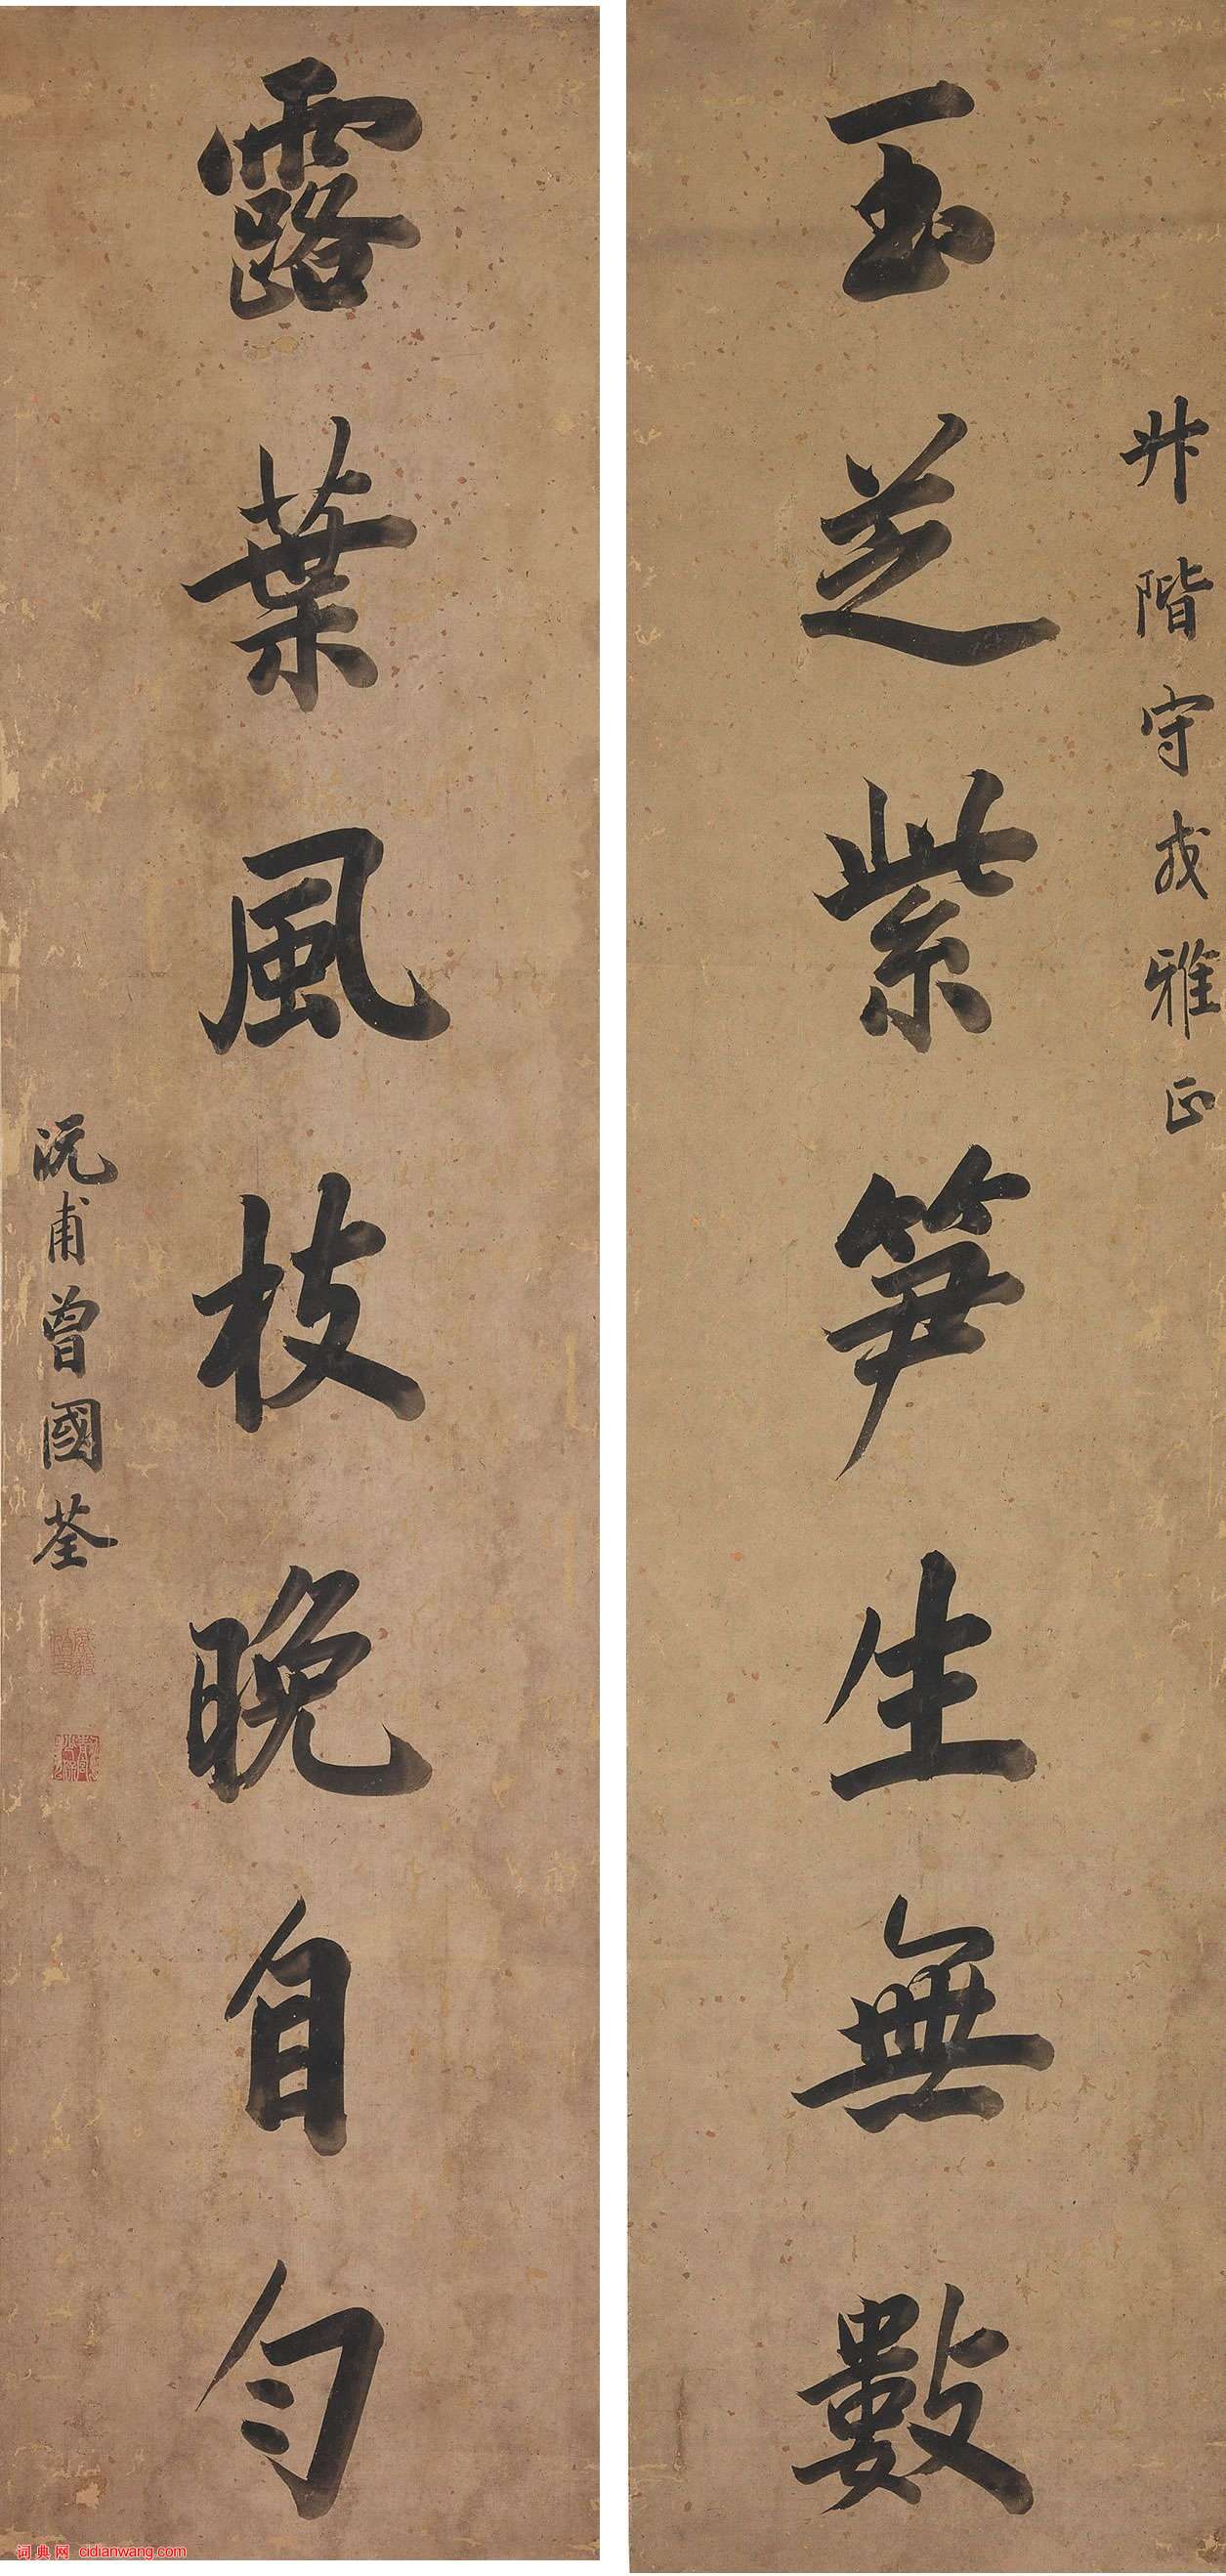 升階守戎雅正
玉芝紫笋生無數
露葉風枝晚自勻
沅甫曾國荃
词典网 cidianwang.com